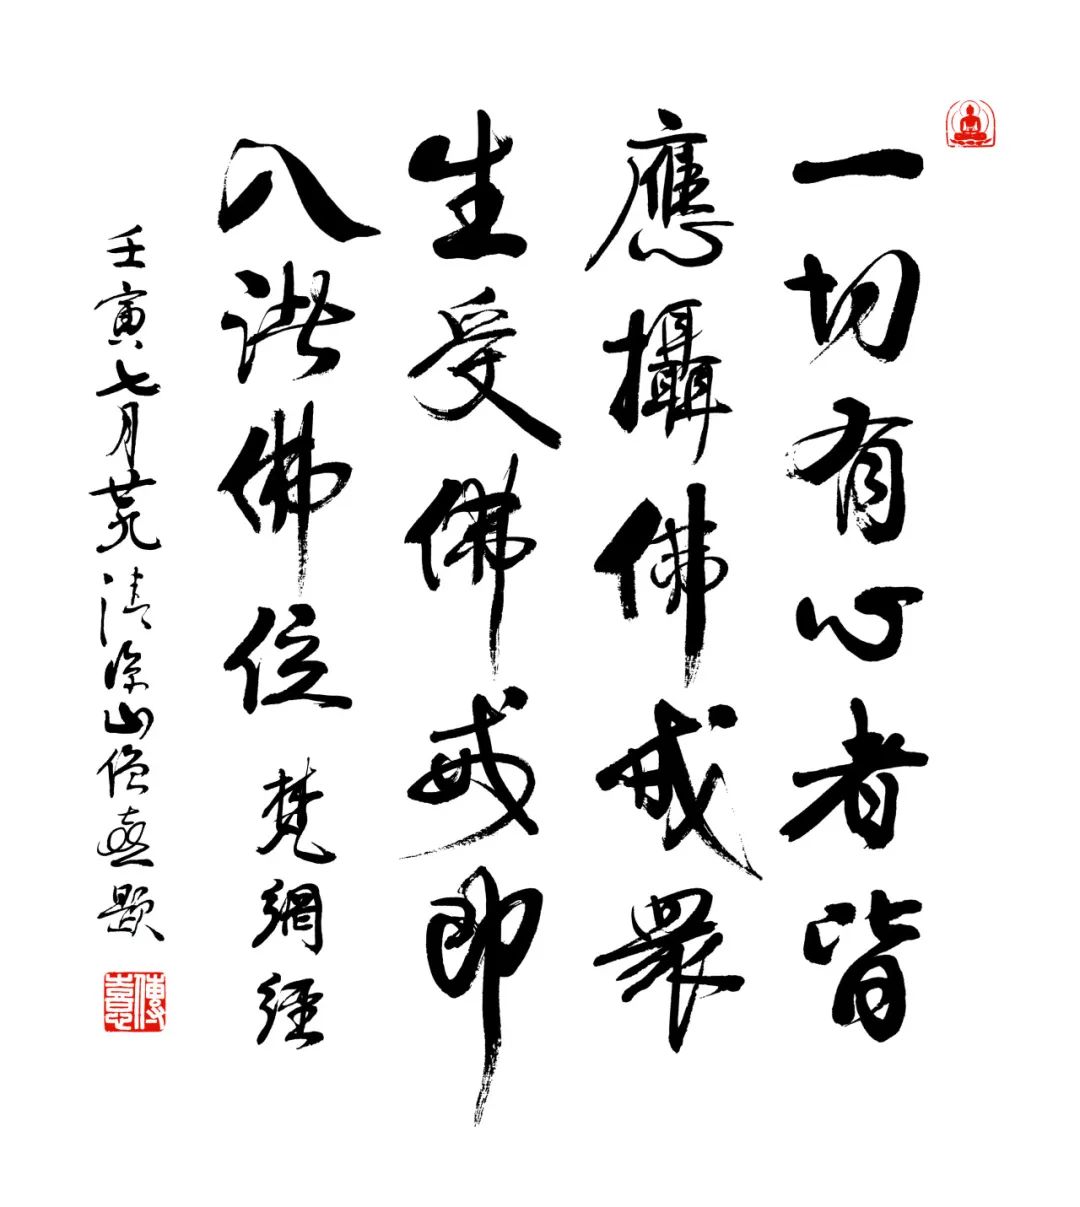 一切有心者皆
應攝佛戒眾
生受佛戒即
入諸佛位 梵網經
壬寅七月廿九清涼山僧憙題
傳憙